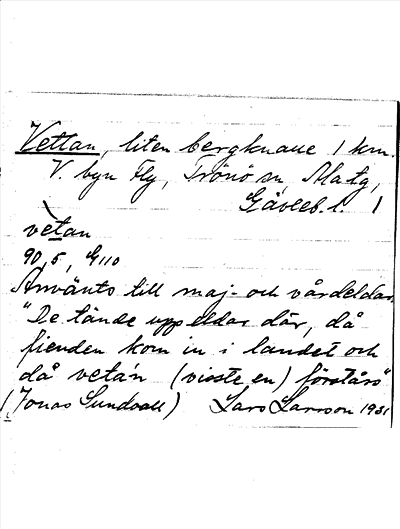 Vettan, liten bergknalle 1 km.
V. byn Fly, Trönö sn, Matg,
Gävleb. l. 1
vetan
90,5, G110
Använts till maj- och vårdeldar.
"De tände upp eldar där, då
fienden kom in i landet och
då vetá'n (visste en) förstårs"
(Jonas Sundvall) Lars Larsson 1931